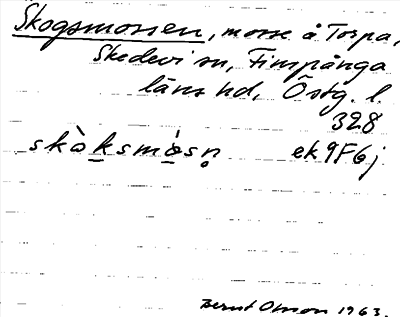 Skogsmossen, mosse å Torpa,
Skedevi sn, Finspånga
läns hd, Östg. l.
328
skòksmåsn ek9F6j
Bernt Olsson 1963.